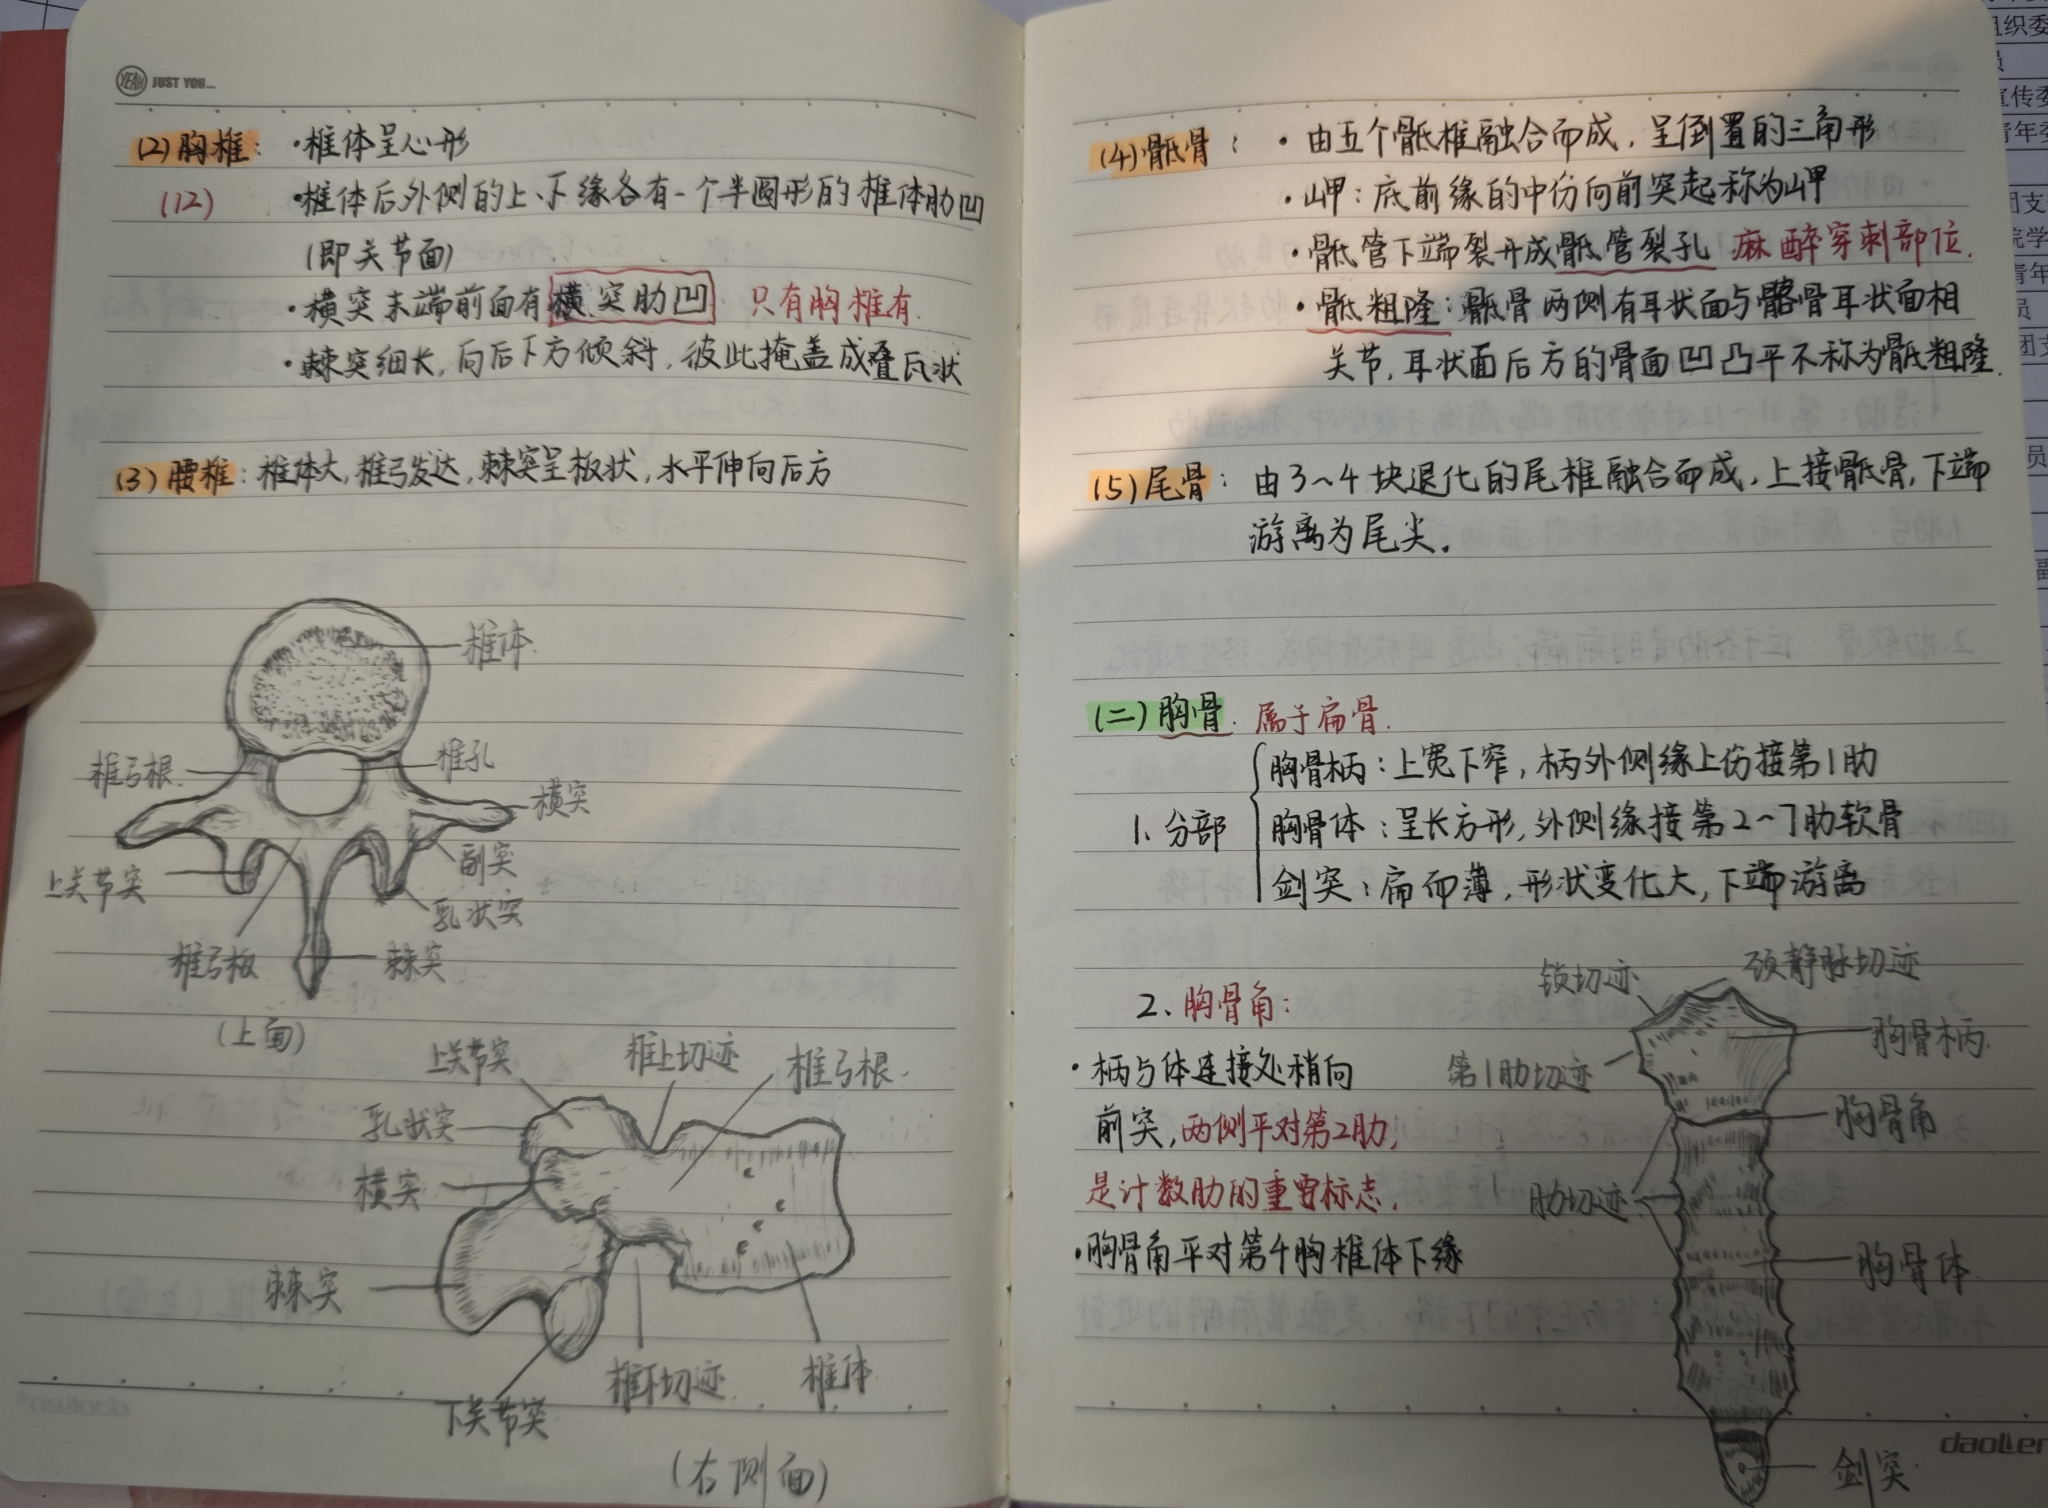 YEAH JUST YOU...
(2)胸椎：·椎体呈心形
(12) ·椎体后外侧的上、下缘各有一个半圆形的椎体肋凹
(即关节面)
·横突末端前面有横突肋凹 只有胸椎有.
·棘突细长,向后下方倾斜,彼此掩盖成叠瓦状
(3)腰椎：椎体大,椎弓发达,棘突呈板状,水平伸向后方
椎体
椎弓根
椎孔
横突
副突
上关节突
乳状突
椎弓板
棘突
(上面)
上关节突
椎上切迹
椎弓根
乳状突
横突
棘突
椎下切迹
椎体
下关节突
(右侧面)
(4)骶骨：·由五个骶椎融合而成,呈倒置的三角形
·岬：底前缘的中份向前突起称为岬
·骶管下端裂开成骶管裂孔 麻醉穿刺部位.
·骶粗隆：骶骨两侧有耳状面与髂骨耳状面相
关节,耳状面后方的骨面凹凸平不称为骶粗隆.
(5)尾骨：由3~4块退化的尾椎融合而成,上接骶骨,下端
游离为尾尖.
(二)胸骨. 属于扁骨.
1、分部
胸骨柄：上宽下窄,柄外侧缘上份接第1肋
胸骨体：呈长方形,外侧缘接第2~7肋软骨
剑突：扁而薄,形状变化大,下端游离
2、胸骨角：
·柄与体连接处稍向
前突,两侧平对第2肋,
是计数肋的重要标志.
·胸骨角平对第4胸椎体下缘
锁切迹
颈静脉切迹
胸骨柄
第1肋切迹
胸骨角
肋切迹
胸骨体
剑突